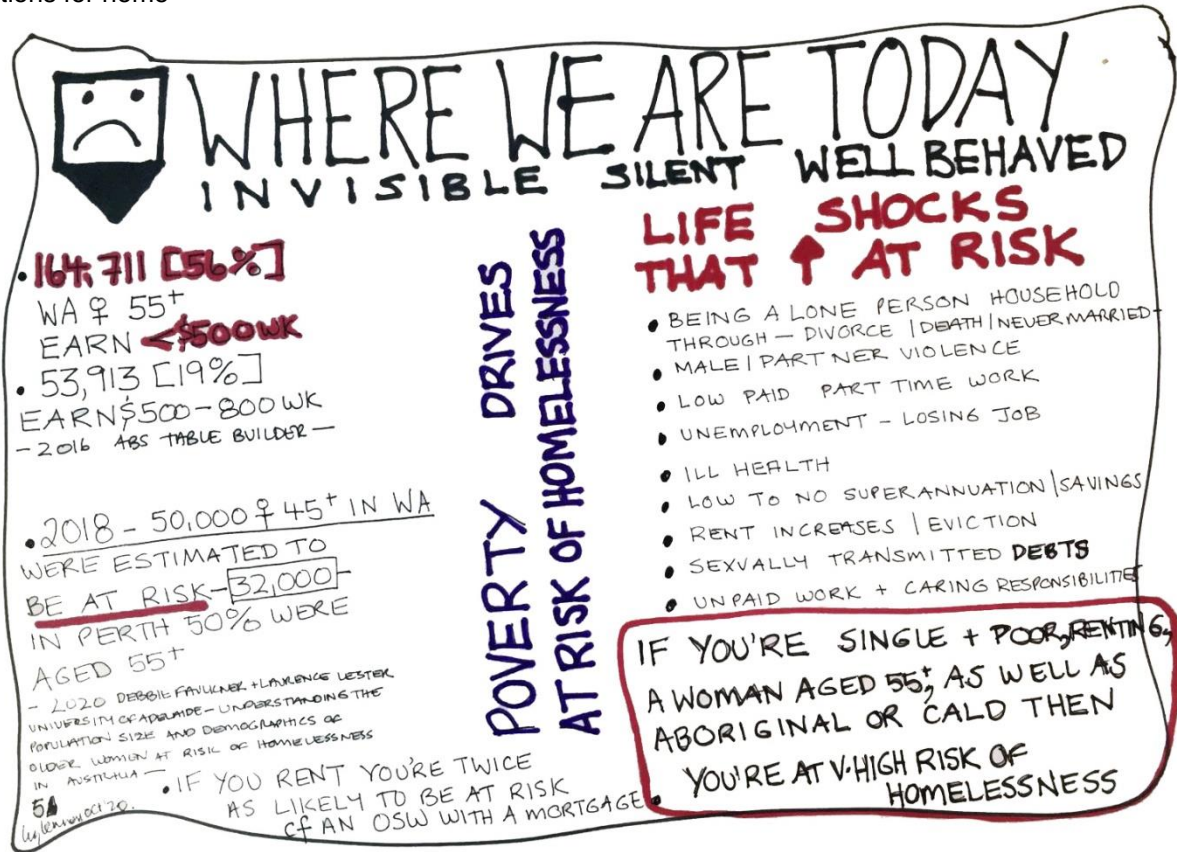 tions for home
WHERE WE ARE TODAY
INVISIBLE SILENT WELL BEHAVED
• 164,711 [56%]
WA ♀ 55+
EARN <$500WK
• 53,913 [19%]
EARN $500-800 WK
- 2016 ABS TABLE BUILDER -
• 2018 - 50,000 ♀ 45+ IN WA
WERE ESTIMATED TO
BE AT RISK - 32,000 -
IN PERTH 50% WERE
AGED 55+
- 2020 DEBBIE FAULKNER + LAURENCE LESTER
UNIVERSITY OF ADELAIDE - UNDERSTANDING THE
POPULATION SIZE AND DEMOGRAPHICS OF
OLDER WOMEN AT RISK OF HOMELESSNESS
IN AUSTRALIA -
• IF YOU RENT YOU'RE TWICE
AS LIKELY TO BE AT RISK
cf AN OSW WITH A MORTGAGE.
oct '20.
POVERTY DRIVES
AT RISK OF HOMELESSNESS
LIFE SHOCKS
THAT ↑ AT RISK
• BEING A LONE PERSON HOUSEHOLD
THROUGH - DIVORCE | DEATH | NEVER MARRIED -
• MALE | PARTNER VIOLENCE
• LOW PAID PART TIME WORK
• UNEMPLOYMENT - LOSING JOB
• ILL HEALTH
• LOW TO NO SUPERANNUATION | SAVINGS
• RENT INCREASES | EVICTION
• SEXUALLY TRANSMITTED DEBTS
• UNPAID WORK + CARING RESPONSIBILITIES
IF YOU'RE SINGLE + POOR, RENTING,
A WOMAN AGED 55+, AS WELL AS
ABORIGINAL OR CALD THEN
YOU'RE AT V. HIGH RISK OF
HOMELESSNESS